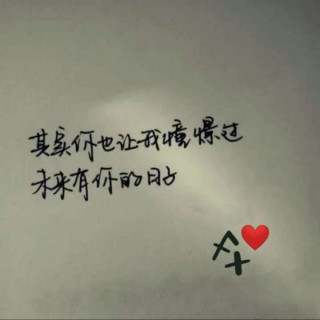 其实你也让我憧憬过
未来有你的日子